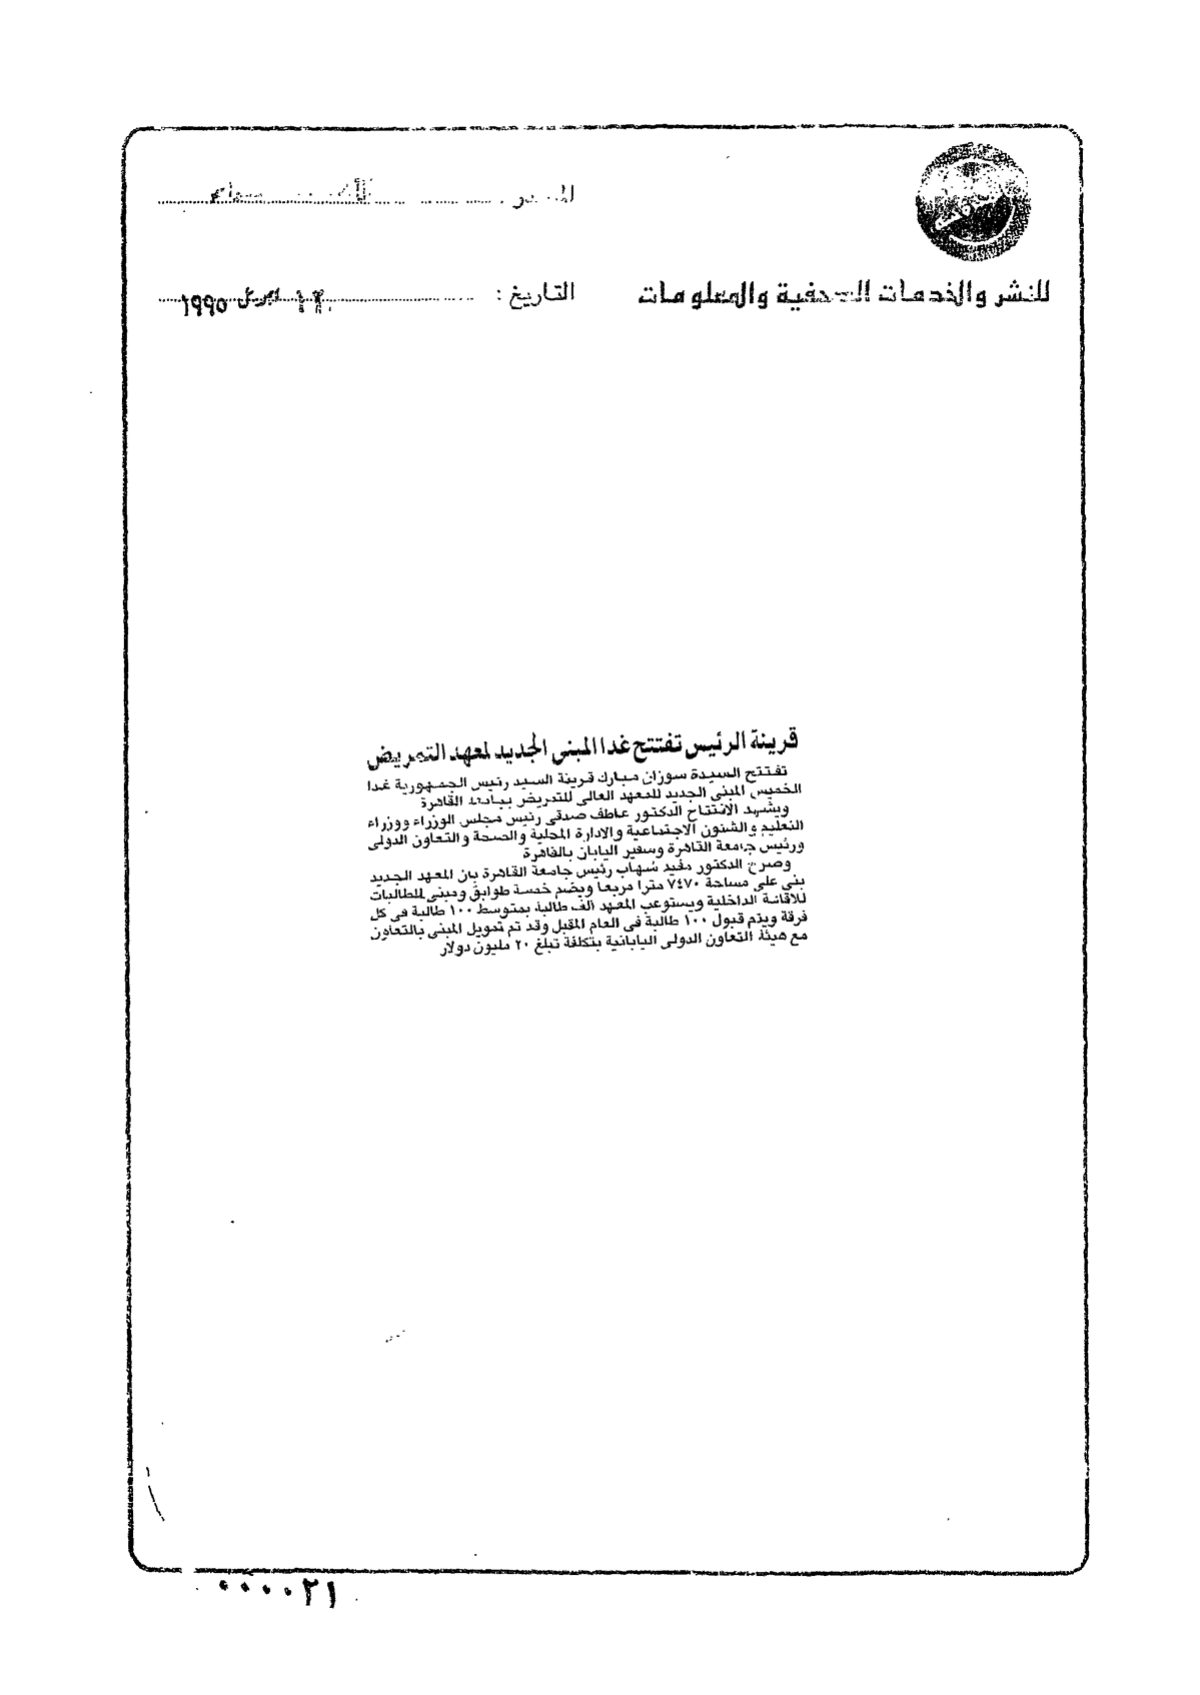 المصدر :
للنشر والخدمات الصحفية والمعلومات
التاريخ : ١٢ ابريل ١٩٩٥
قرينة الرئيس تفتتح غدا المبنى الجديد لمعهد التمريض
تفتتح السيدة سوزان مبارك قرينة السيد رئيس الجمهورية غدا
الخميس المبنى الجديد للمعهد العالى للتمريض بجامعة القاهرة
ويشهد الافتتاح الدكتور عاطف صدقى رئيس مجلس الوزراء ووزراء
التعليم والشئون الاجتماعية والادارة المحلية والصحة والتعاون الدولى
ورئيس جامعة القاهرة وسفير اليابان بالقاهرة
وصرح الدكتور مفيد شهاب رئيس جامعة القاهرة بان المعهد الجديد
بنى على مساحة ٧٤٧٠ مترا مربعا ويضم خمسة طوابق ومبنى للطالبات
للاقامة الداخلية ويستوعب المعهد الف طالبة بمتوسط ١٠٠ طالبة فى كل
فرقة ويتم قبول ١٠٠ طالبة فى العام المقبل وقد تم تمويل المبنى بالتعاون
مع هيئة التعاون الدولى اليابانية بتكلفة تبلغ ٢٠ مليون دولار
٠٠٠٠٢١